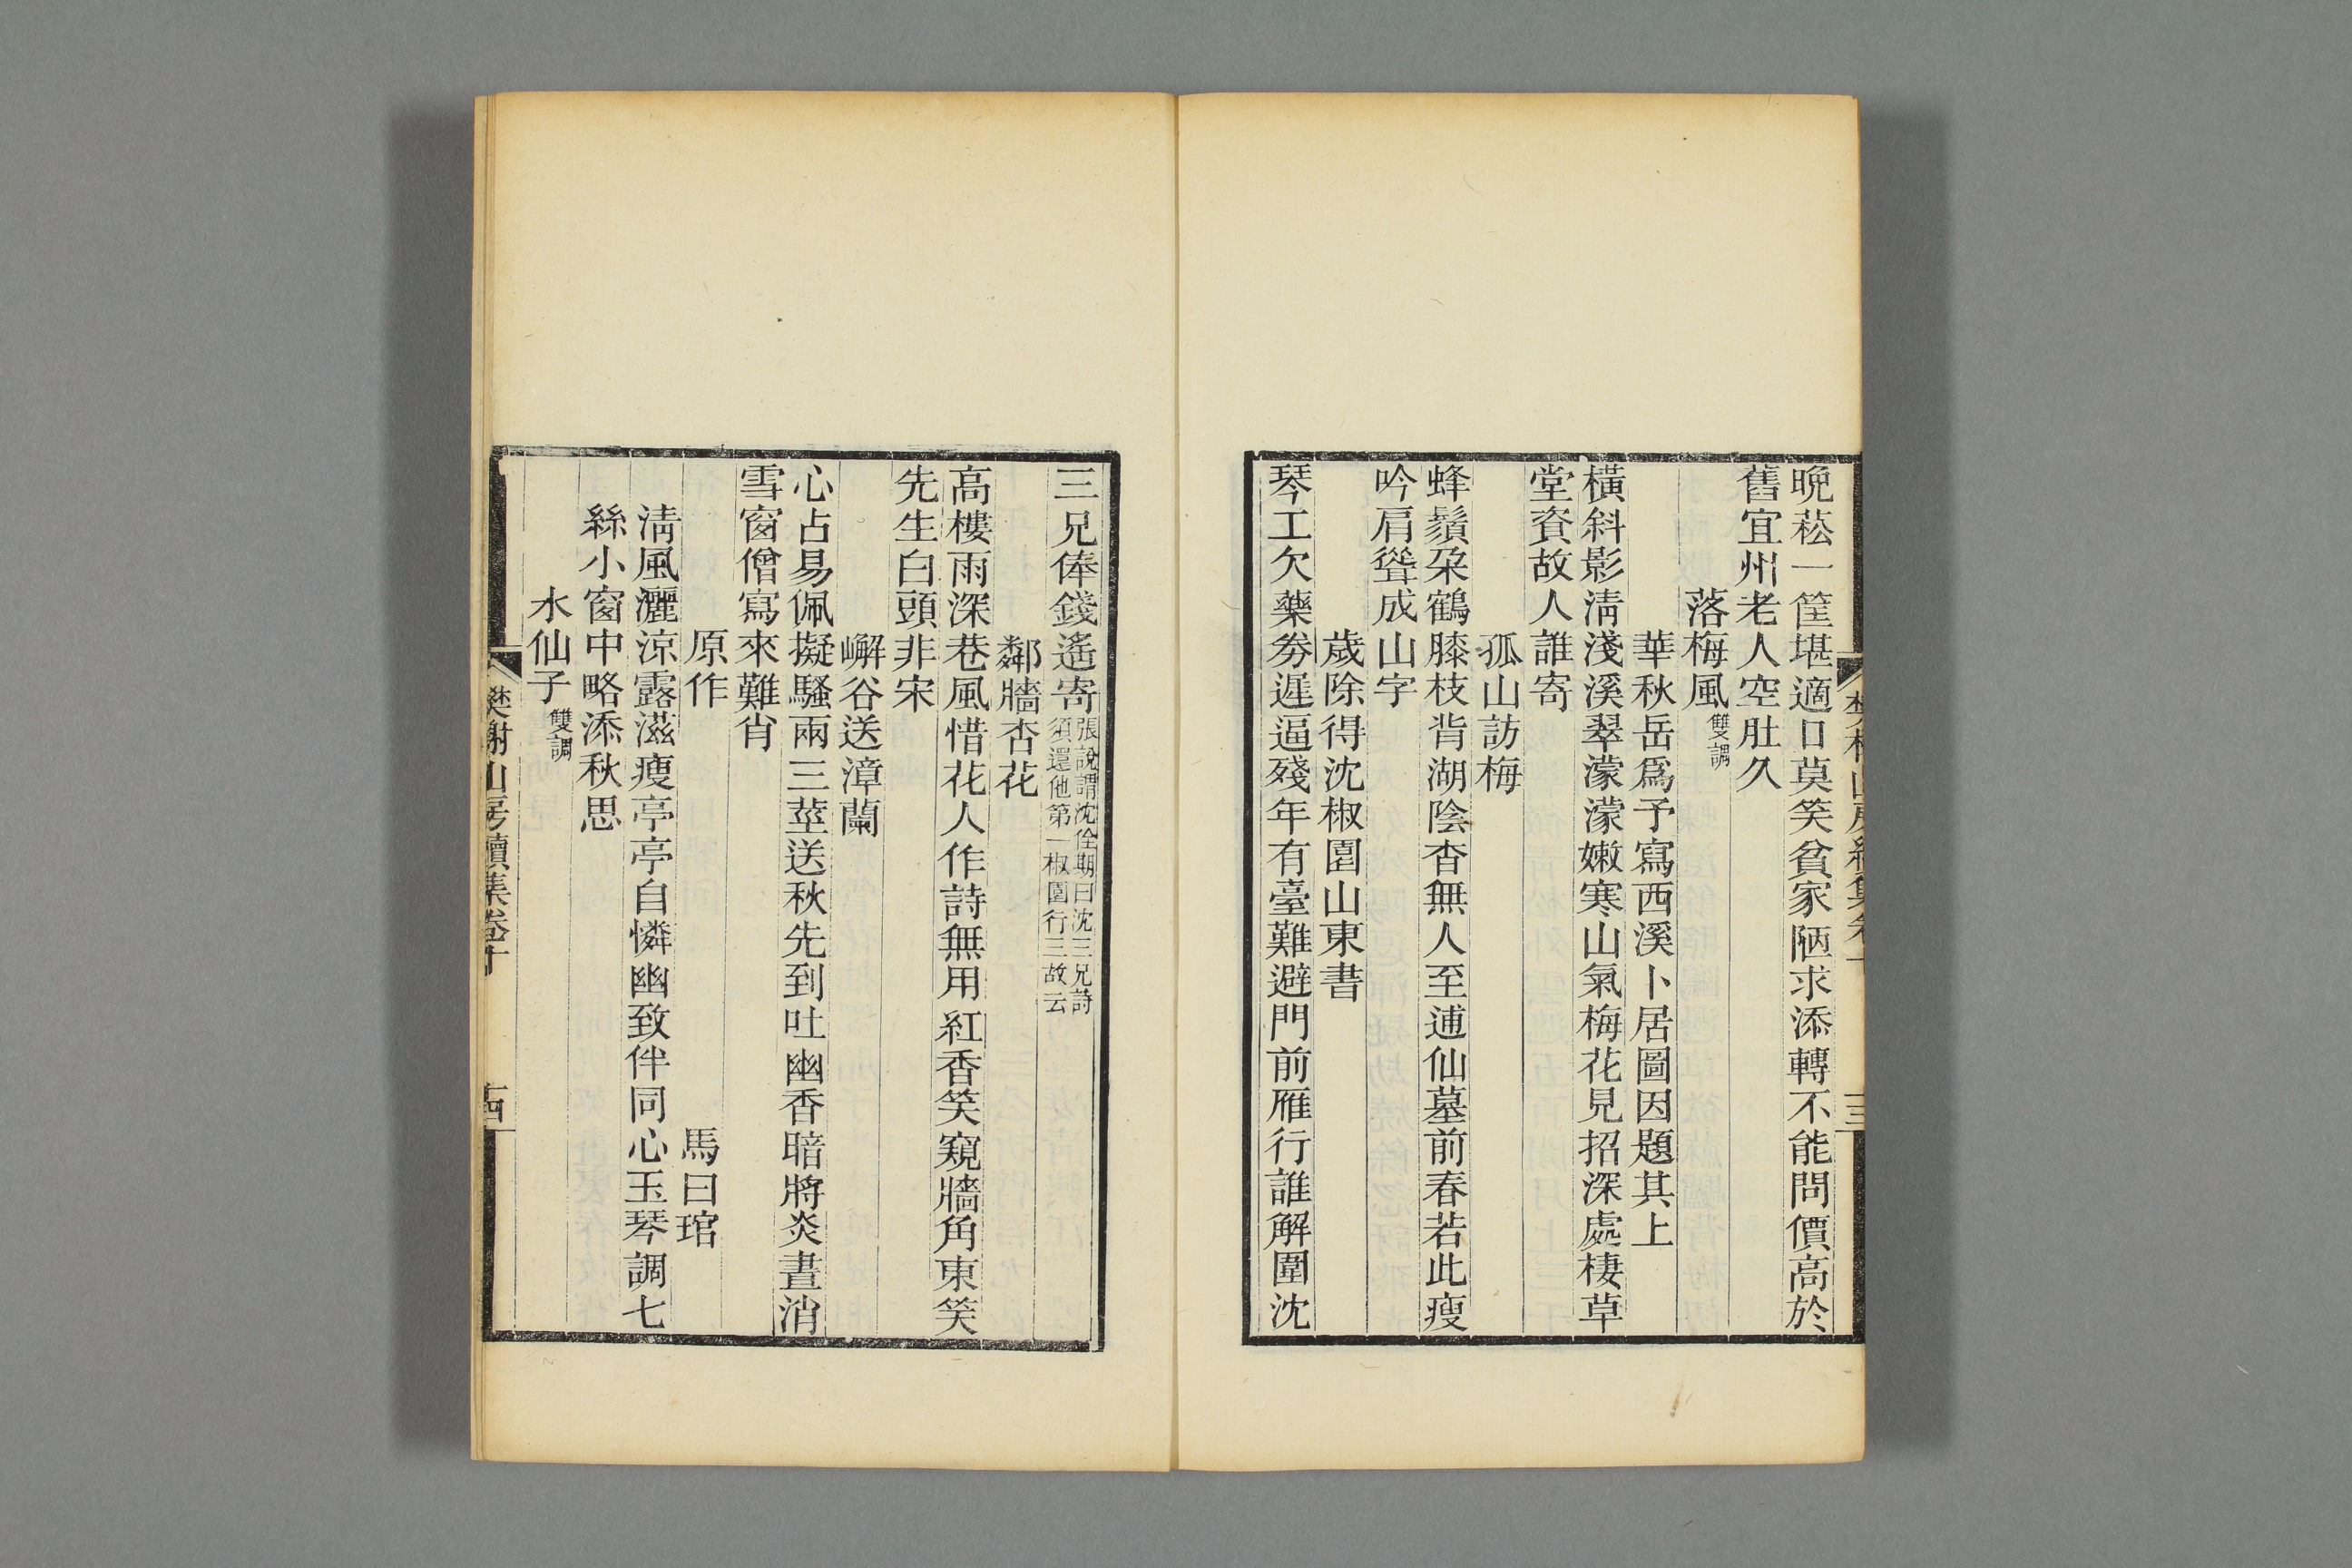 晚菘一筐堪適口莫笑貧家陋求添轉不能問價高於
舊宜州老人空肚久
落梅風雙調
華秋岳爲予寫西溪卜居圖因題其上
橫斜影淸淺溪翠濛濛嫩寒山氣梅花見招深處棲草
堂資故人誰寄
孤山訪梅
蜂鬚朶鶴膝枝背湖陰杳無人至逋仙墓前春若此瘦
吟肩聳成山字
歲除得沈椒園山東書
琴工欠藥券遲逼殘年有臺難避門前雁行誰解圍沈
三兄俸錢遙寄張說謂沈佺期曰沈三兄詩
須還他第一椒園行三故云
鄰牆杏花
高樓雨深巷風惜花人作詩無用紅香笑窺牆角東笑
先生白頭非宋
嶰谷送漳蘭
心占易佩擬騷兩三莖送秋先到吐幽香暗將炎晝消
雪窗僧寫來難肖
原作 馬曰琯
淸風灑涼露滋瘦亭亭自憐幽致伴同心玉琴調七
絲小窗中略添秋思
水仙子雙調
樊榭山房續集卷十 十四